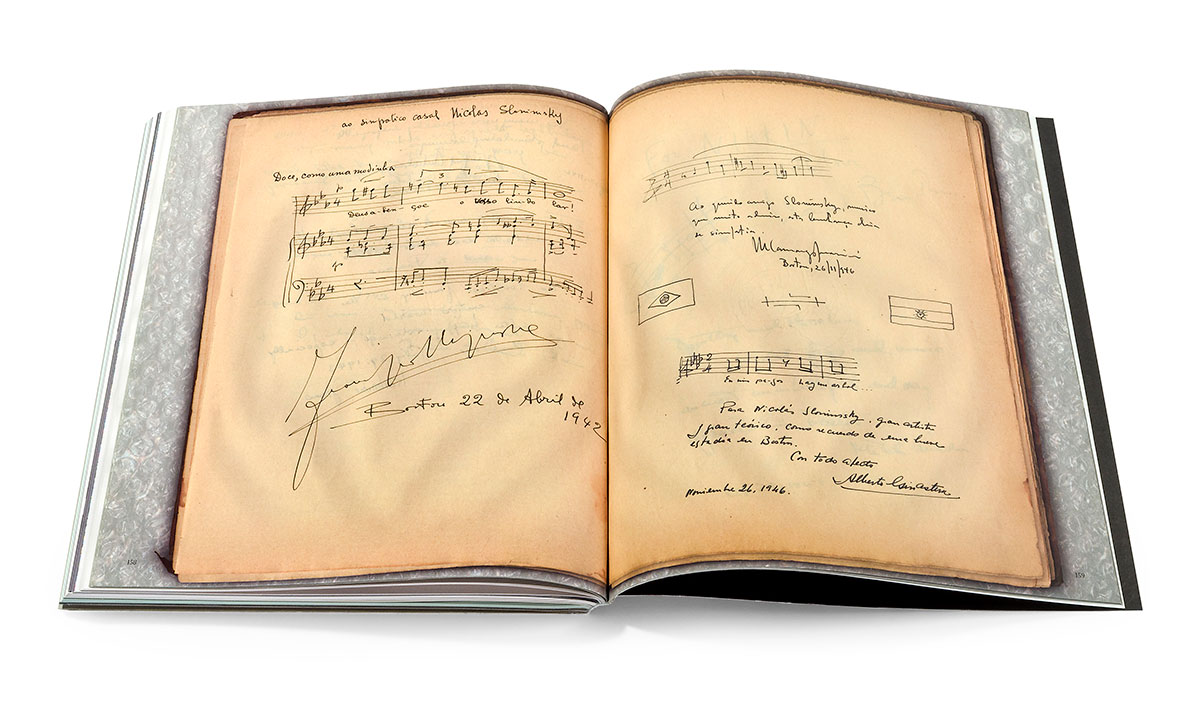 ao simpatico casal Nicolas Slonimsky
Doce, como uma modinha
3
Deus a-ben-çoe o vosso lin-do lar!
Francisco Mignone
Boston 22 de Abril de
1942
158
Ao querido amigo Slonimsky, musico
que muito admiro, esta lembrança
de simpatia.
M Camargo Guarnieri
Boston, 26/11/946
Para Nicolás Slonimsky, gran artista
y gran teórico, como recuerdo de una breve
estadía en Boston.
Con todo afecto
Alberto Ginastera
Noviembre 26, 1946.
159